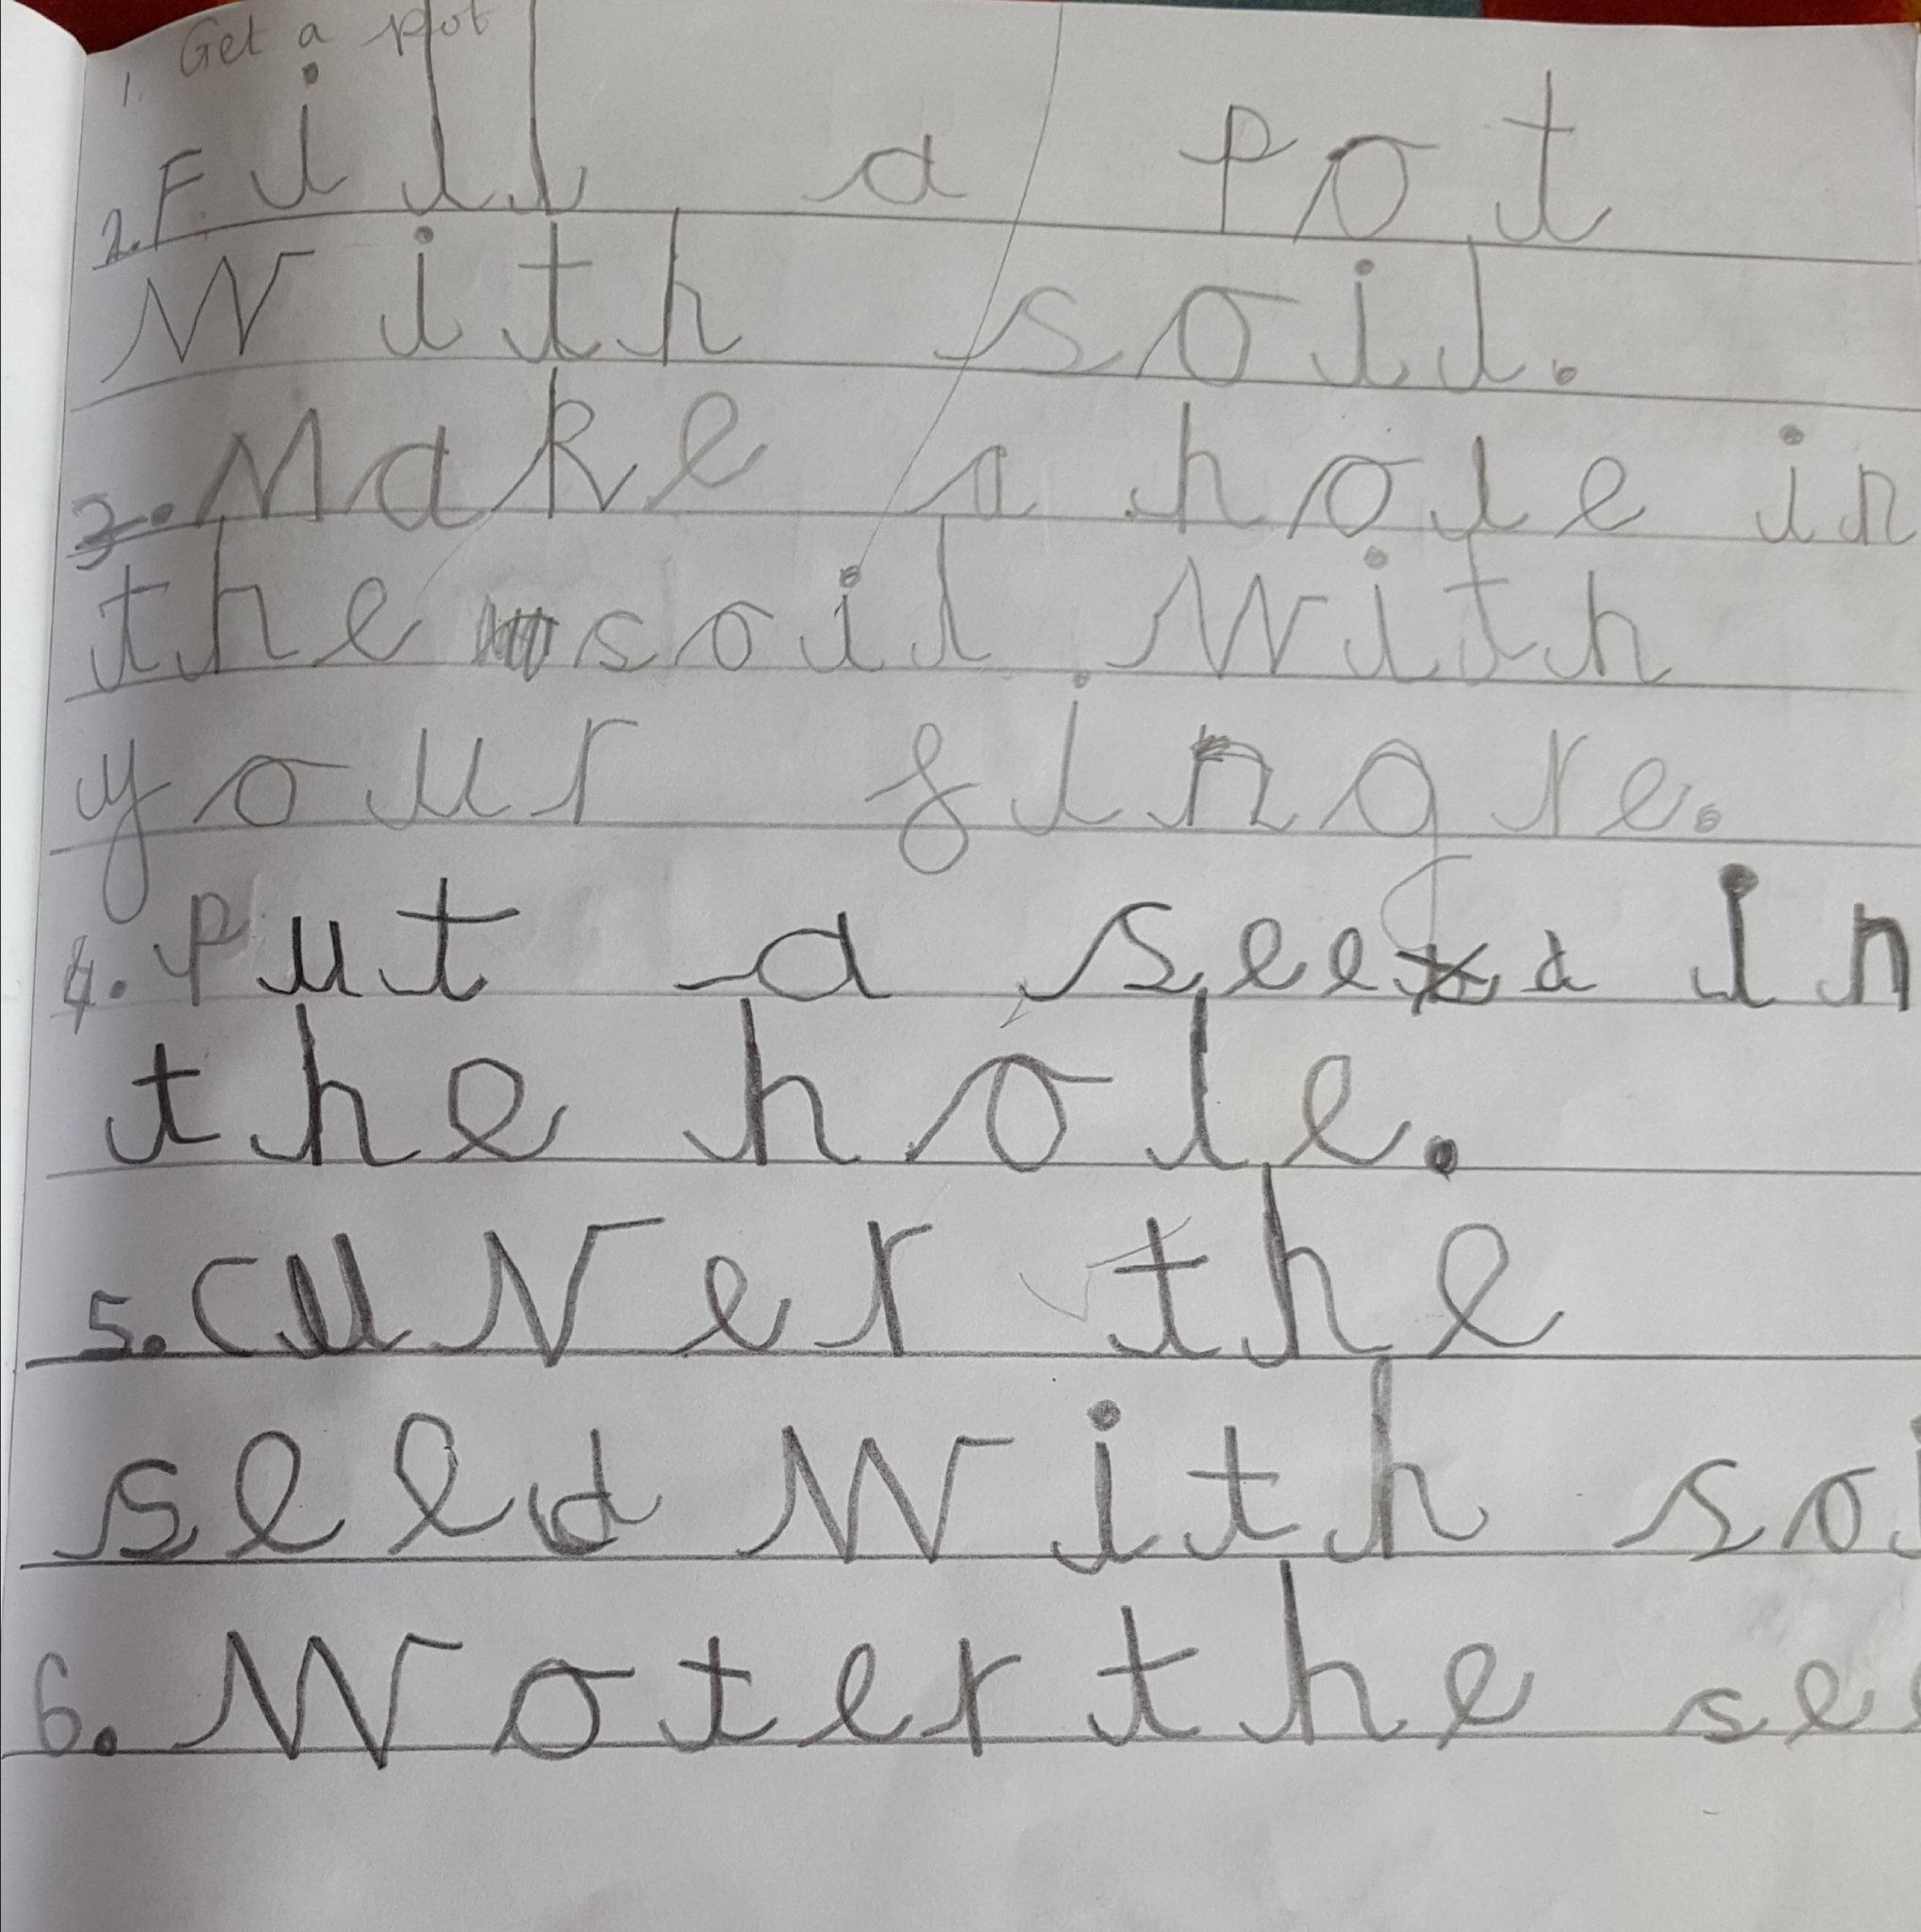 1. Get a pot
2. Fill a pot
with soil.
3. Make a hole in
the soil with
your fingre.
4. Put a seed in
the hole.
5. Cuver the
seed with soi
6. Woter the see